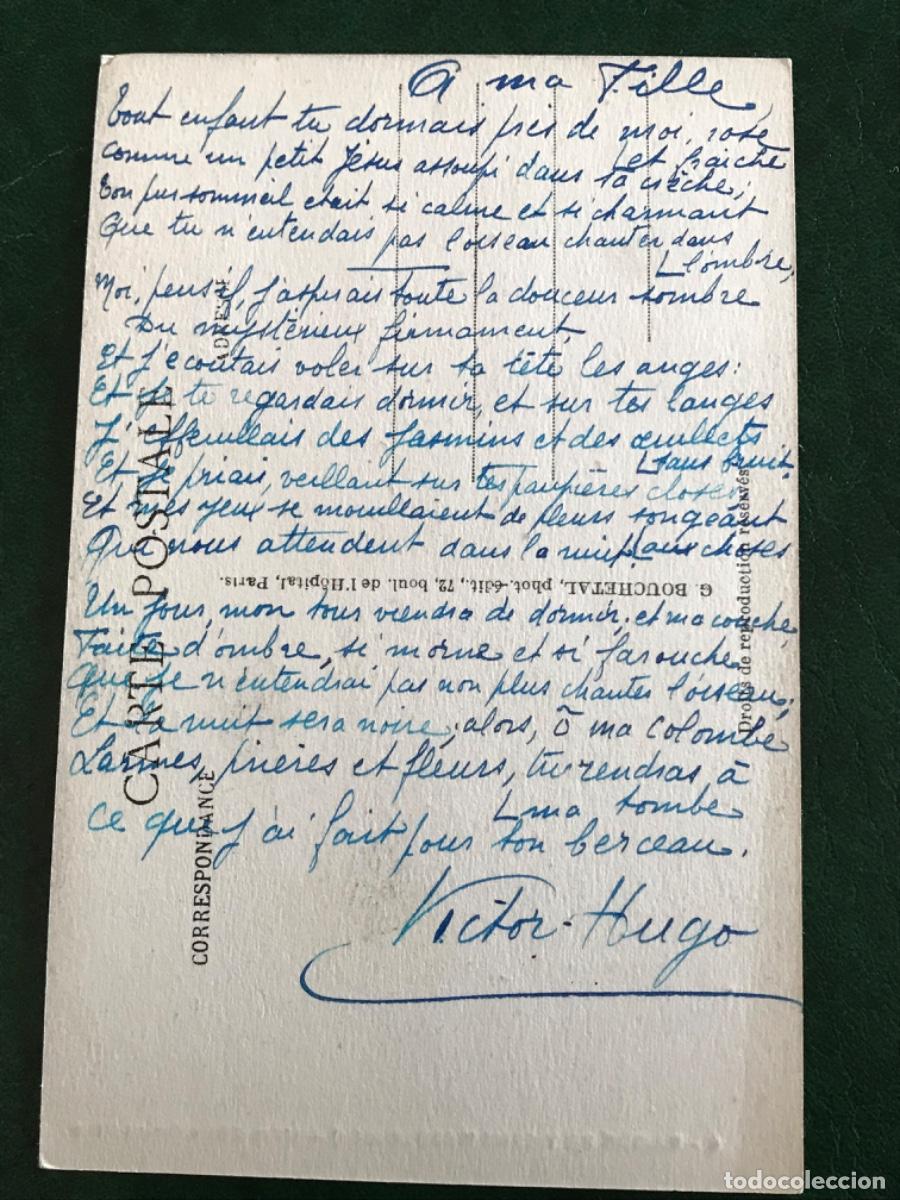 A ma Fille
Tout enfant tu dormais près de moi, rose
et fraîche
comme un petit Jésus assoupi dans ta crèche;
Ton pur sommeil était si calme et si charmant
Que tu n'entendais pas l'oiseau chanter dans
l'ombre;
Moi, pensif, j'aspirais toute la douceur sombre
Du mystérieux firmament.
Et j'écoutais voler sur ta tête les anges:
Et je te regardais dormir, et sur tes langes
J'effeuillais des jasmins et des œillets
sans bruit
Et je priais, veillant sur tes paupières closes
Et mes yeux se mouillaient de pleurs songeant
aux choses
Qui nous attendent dans la nuit
Un jour, mon tour viendra de dormir, et ma couche,
Faite d'ombre, si morne et si farouche
Que je n'entendrai pas non plus chanter l'oiseau;
Et la nuit sera noire, alors, ô ma colombe
Larmes, prières et fleurs, tu rendras à
ma tombe
ce que j'ai fait pour ton berceau.
Victor-Hugo
CARTE POSTALE
CORRESPONDANCE
ADRESSE
G. BOUCHETAL, phot.-édit., 72, boul. de l'Hôpital, Paris.
Droits de reproduction réservés
todocoleccion